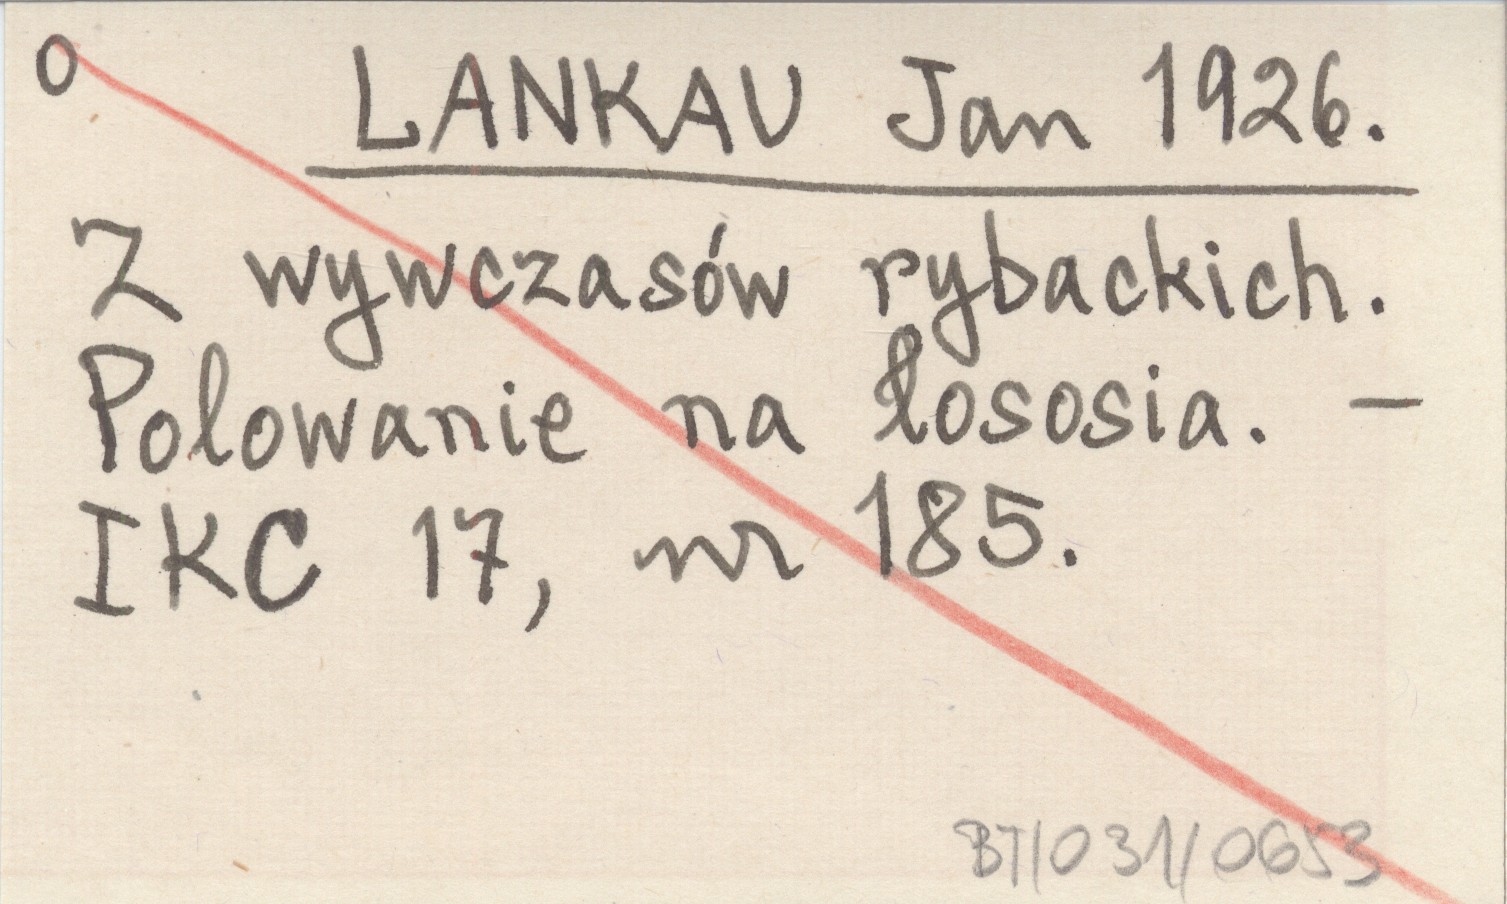 O LANKAU Jan 1926.
Z wywczasów rybackich.
Polowanie na łososia. –
IKC 17, nr 185.
BT/031/0653